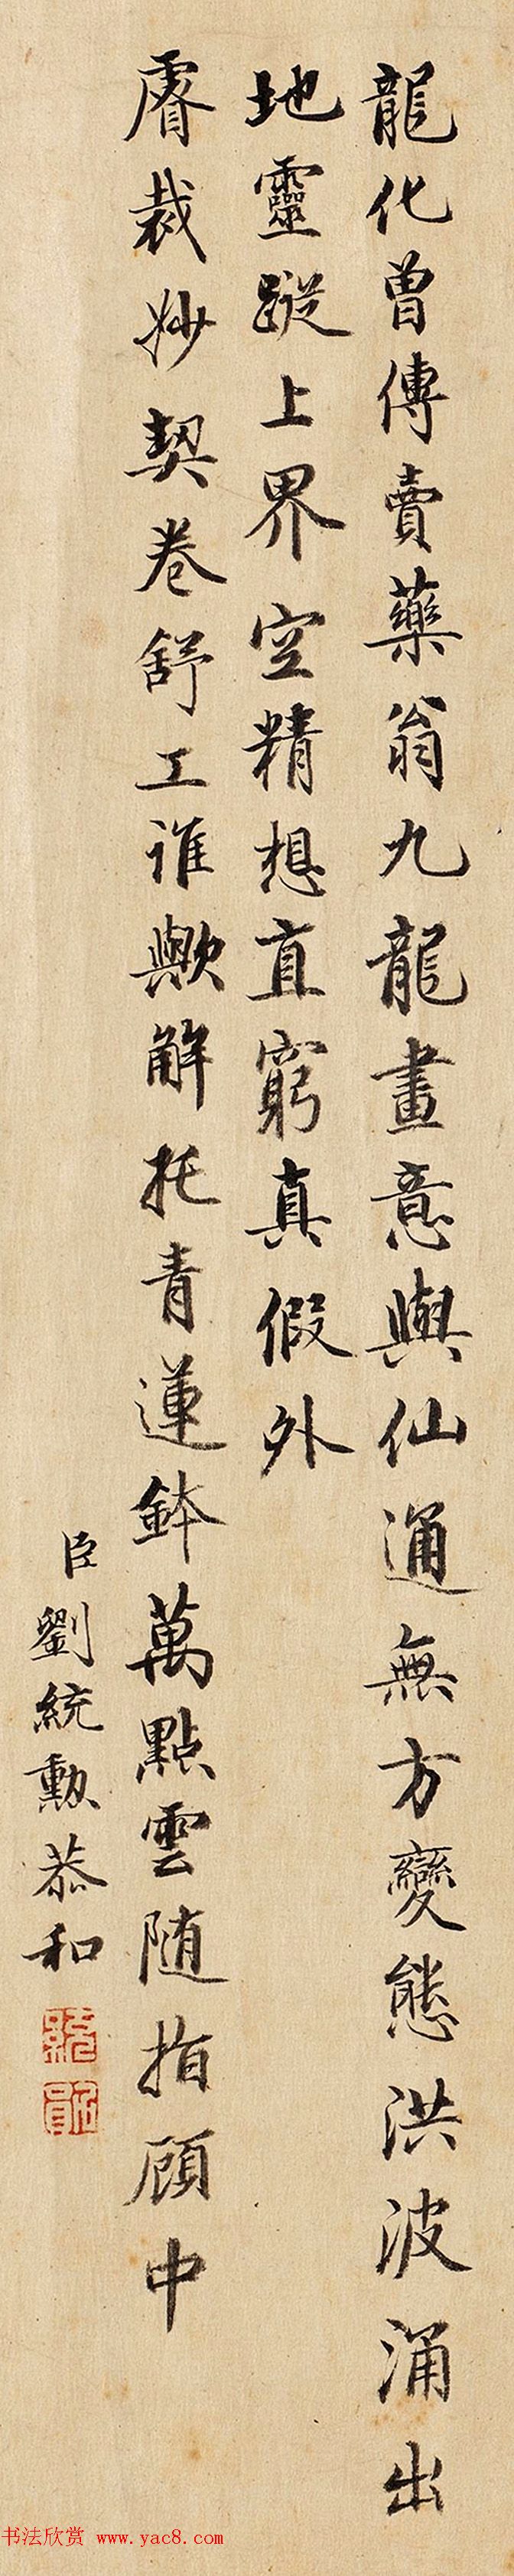 龍化曾傳賣藥翁九龍畫意與仙通無方變態洪波涌出
地靈蹤上界空精想直窮真假外
睿裁妙契卷舒工誰歟解托青蓮鉢萬點雲随指顧中
臣劉統勲恭和
書法欣赏 www.yac8.com